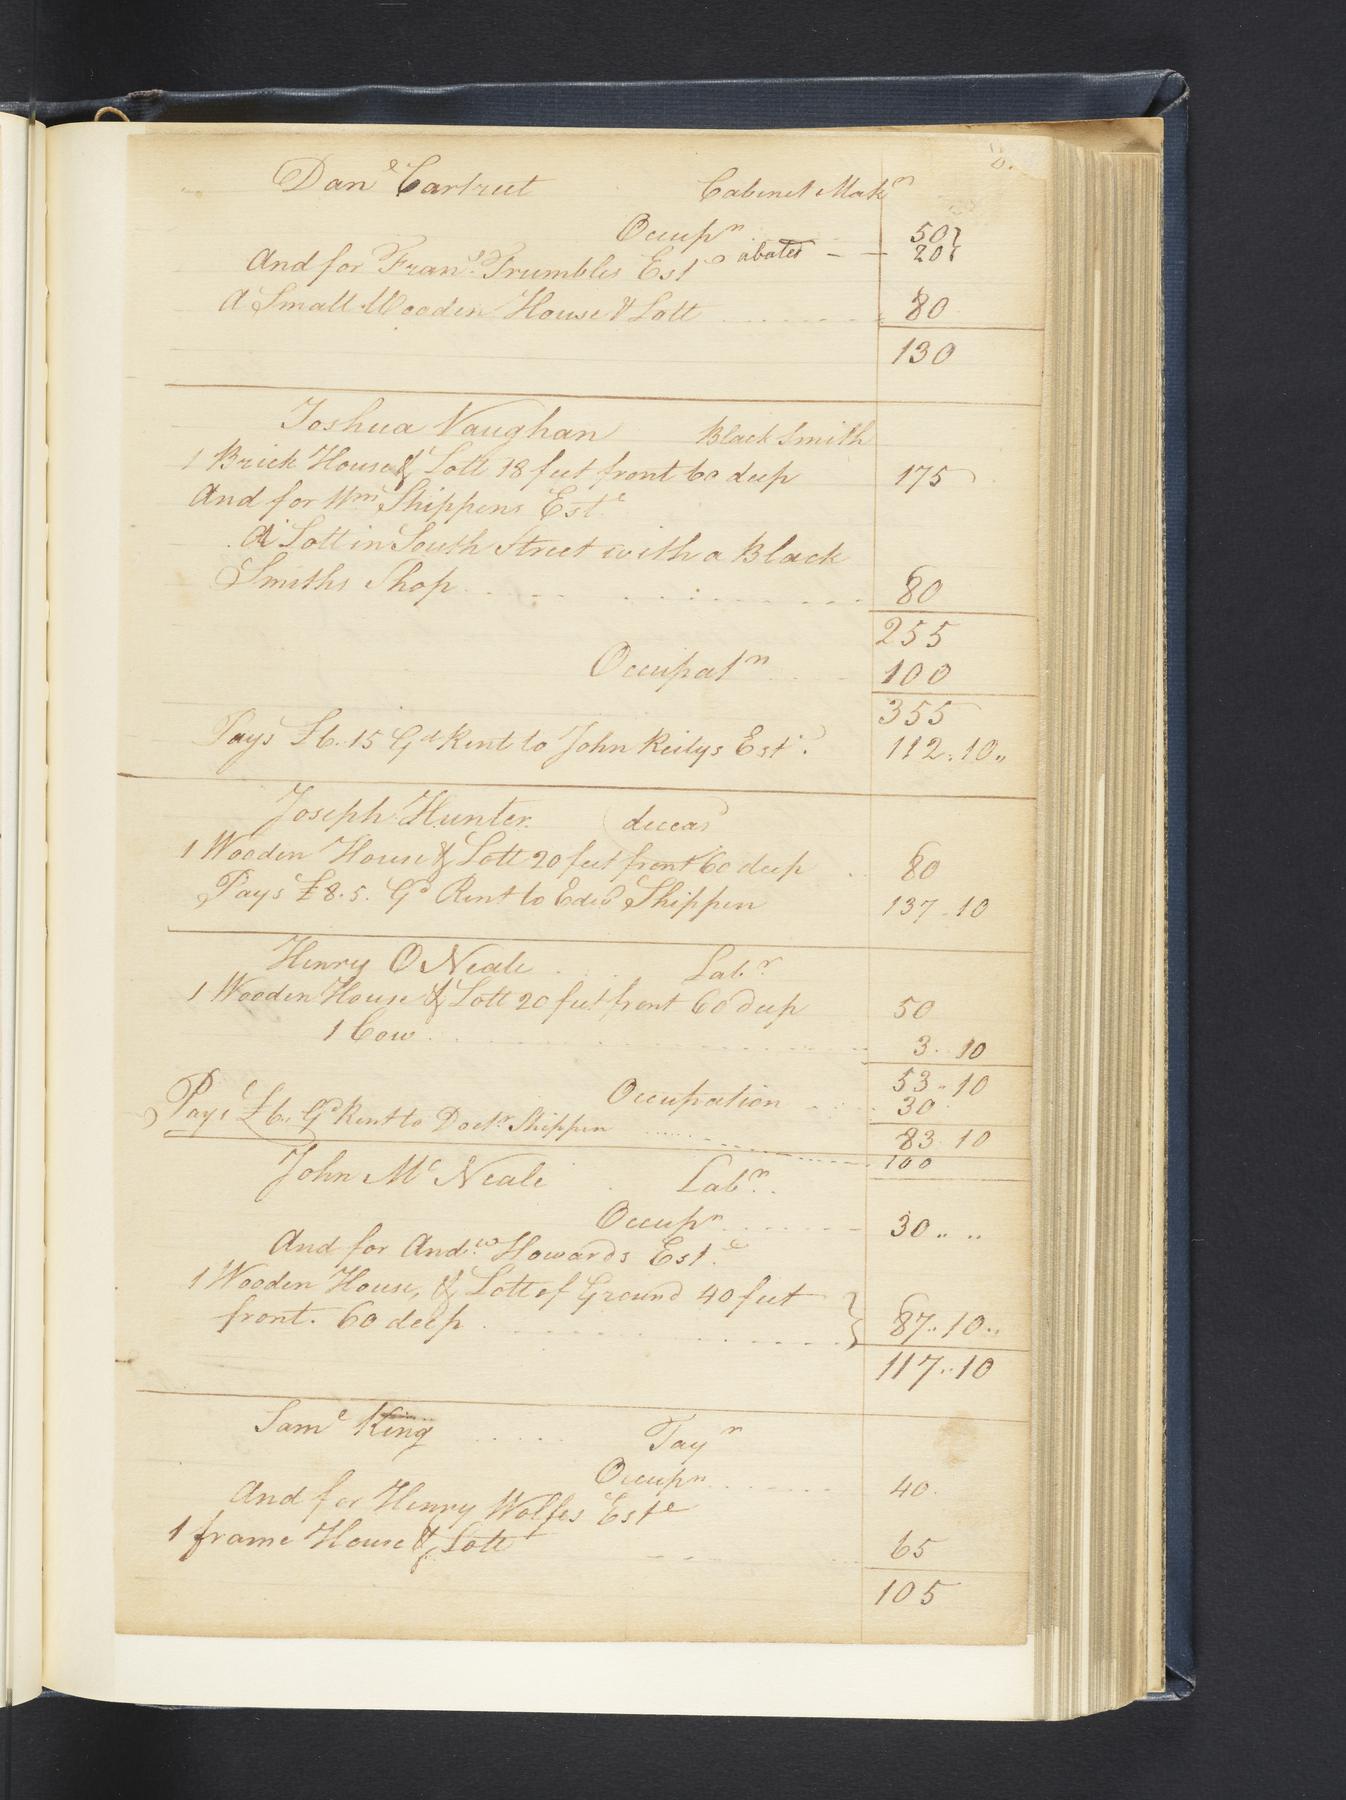 Dan.l Cartreet Cabinet Mak.r
Occup.n 50
And for Fran.s Trumbles Est abated 20
A Small Wooden House & Lott 80
130
Joshua Vaughan Black Smith
1 Brick House & Lott 18 feet front 60 deep 175
And for Wm Shippens Est.e
A Lott in South Street with a Black
Smiths Shop 80
255
Occupat.n 100
355
Pays £6..15 G.d Rent to John Reilys Est.e 112..10..
Joseph Hunter (deceas.d
1 Wooden House & Lott 20 feet front 60 deep 80
Pays £8.5. G.d Rent to Edw.d Shippen 137..10
Henry O Neale Lab.r
1 Wooden House & Lott 20 feet front 60 deep 50
1 Cow 3..10
53..10
Occupation 30
Pays £6.. G.d Rent to Doct.r Shippen 83 10
100
John Mc Neale Lab.r
Occup.n 30.. ..
And for And.w Howards Est.e
1 Wooden House, & Lott of Ground 40 feet
front. 60 deep 87..10..
117..10
Sam.l King Tay.r
Occup.n 40
And for Henry Wolfes Est.e
1 frame House & Lott 65
105